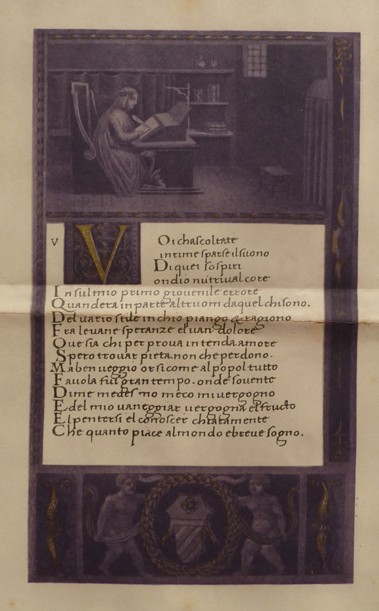 V
V Oi chascoltate
in rime sparse il suono
Di quei sospiri
ondio nutriual core
In sul mio primo giouenile errore
Quandera in parte altruom da quel chi sono.
Del uario stile in chio piango & ragiono
Fra le uane speranze el uan dolore
Oue sia chi per proua intenda amore
Spero trouar pieta. non che perdono.
Ma ben ueggio or si come al popol tutto
Fauola fui gran tempo. onde souente
Di me medesmo meco mi uergogno
E del mio uaneggiar uergogna el fructo
El pentersi el conoscer chiaramente
Che quanto piace al mondo e breue sogno.